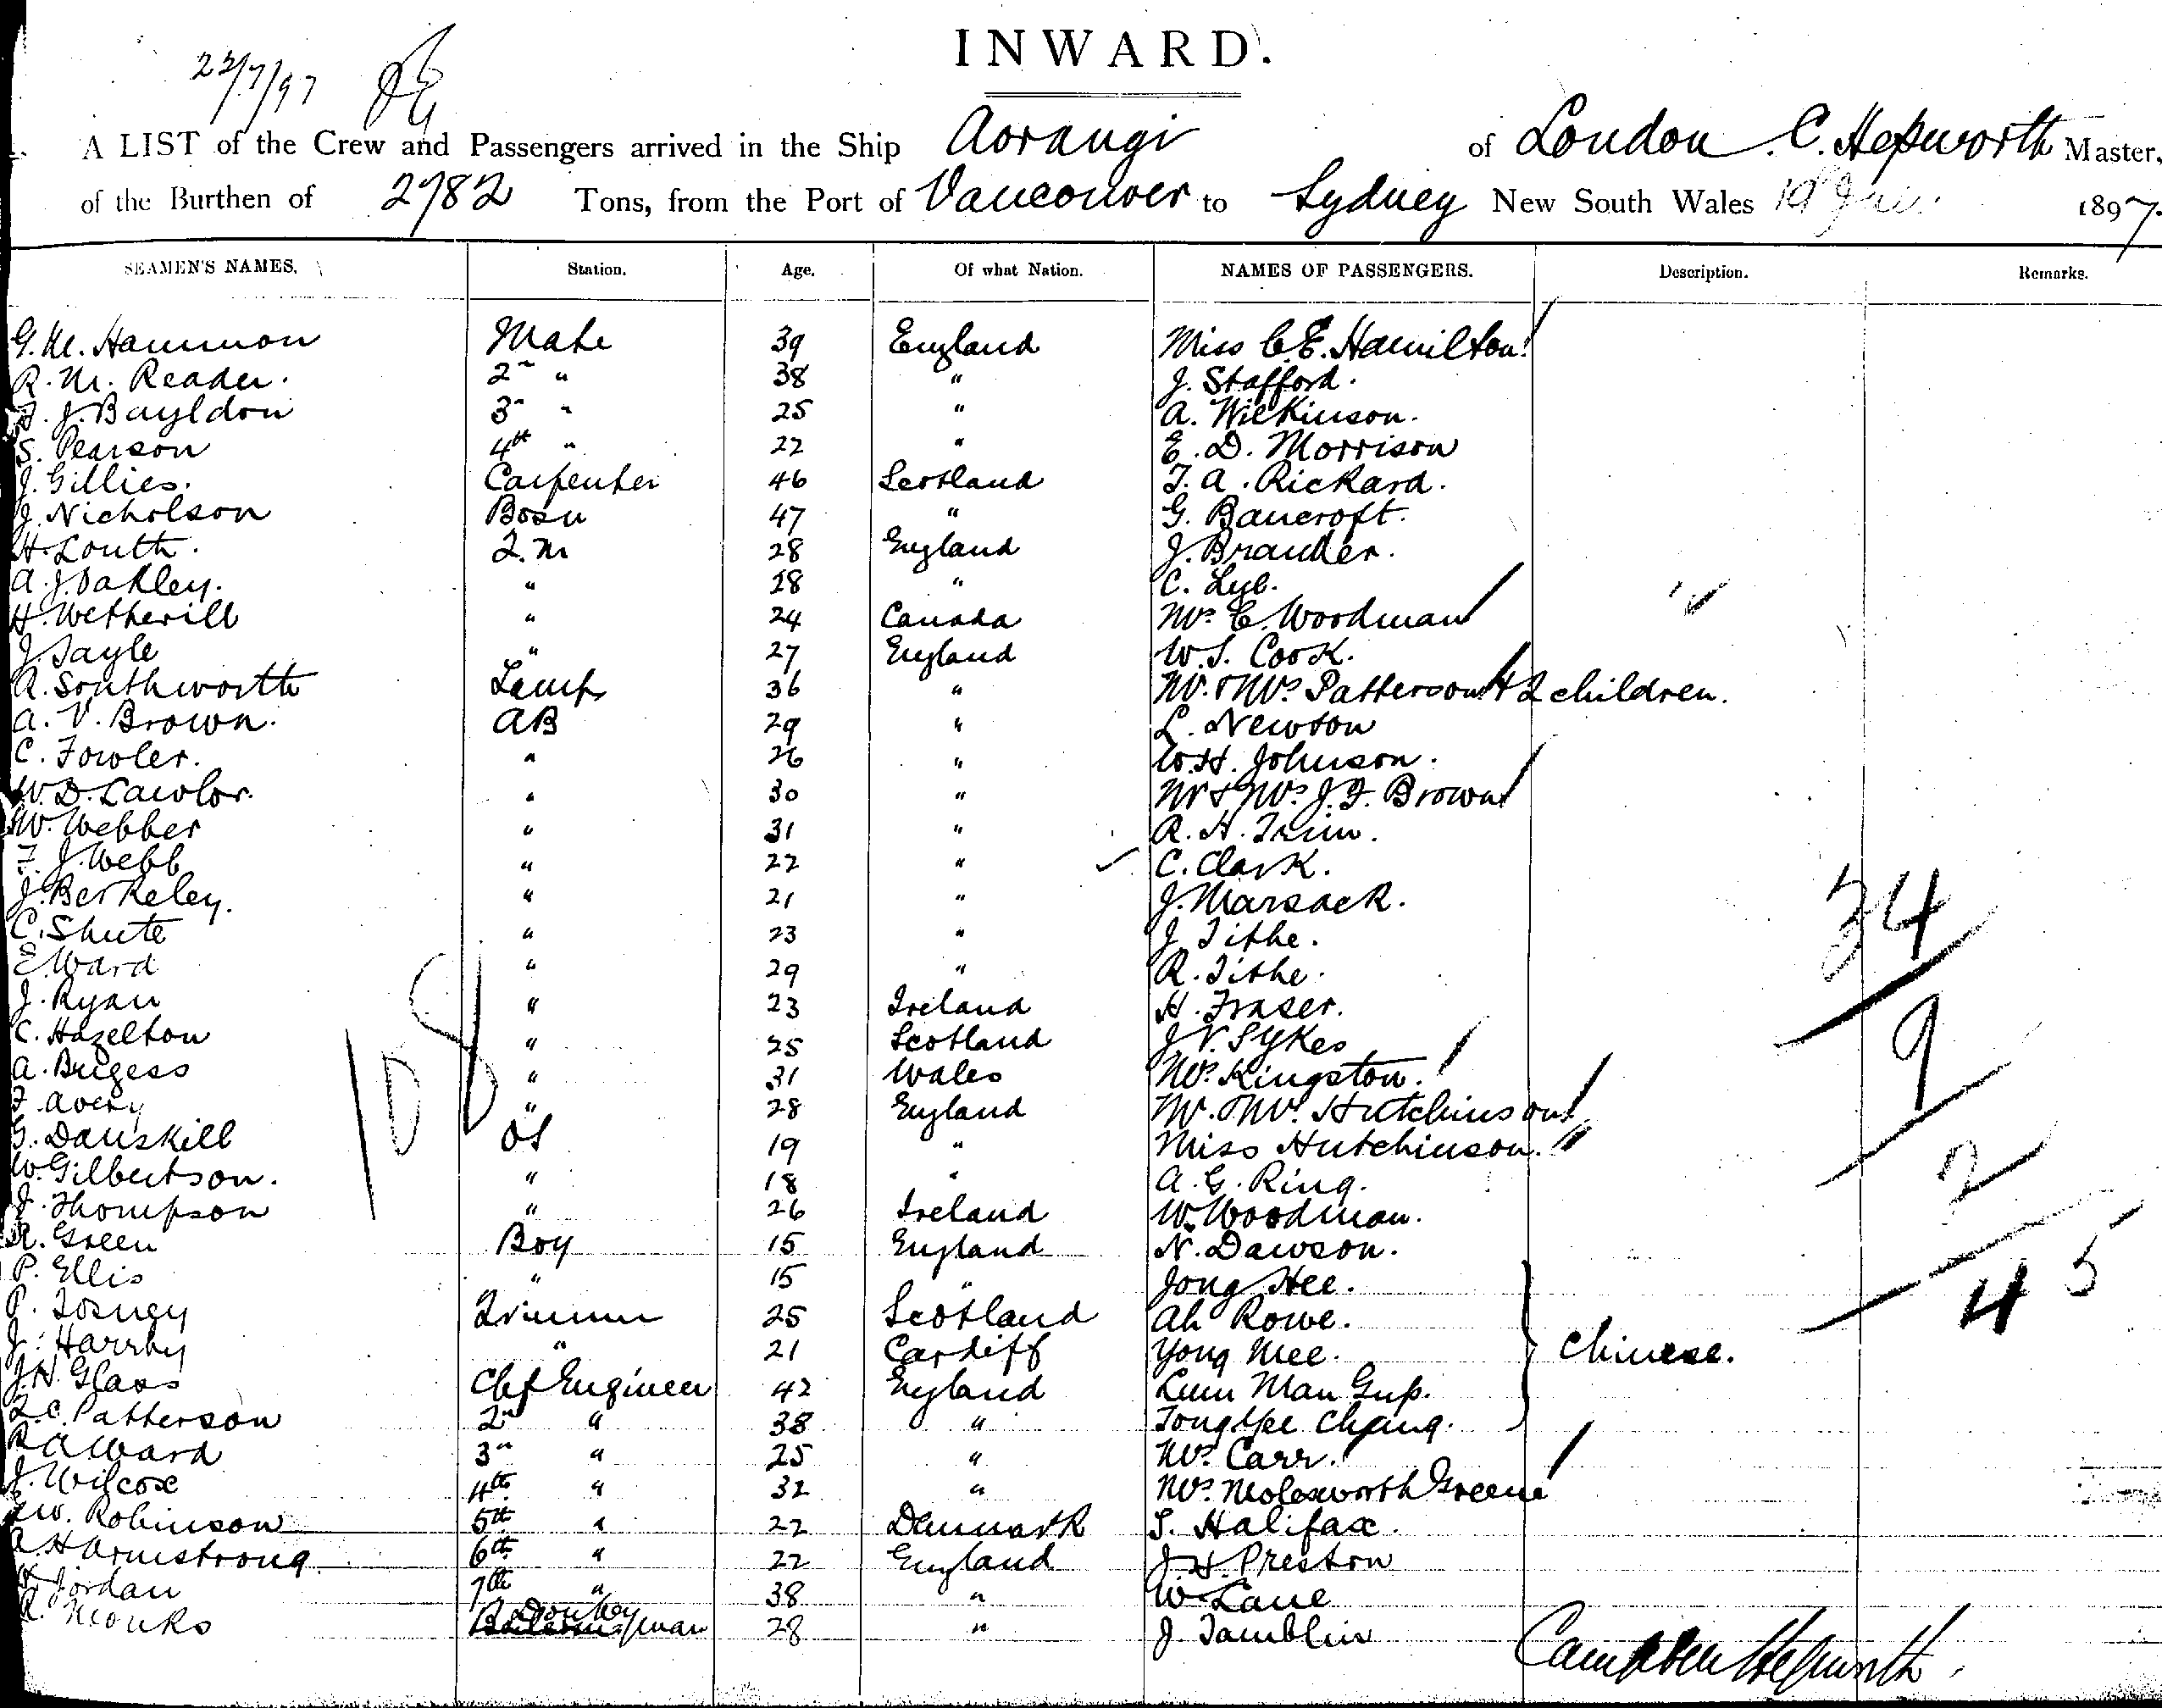 INWARD.
22/7/97
A LIST of the Crew and Passengers arrived in the Ship Aorangi of London C. Hepworth Master,
of the Burthen of 2782 Tons, from the Port of Vancouver to Sydney New South Wales 19 1897.
SEAMEN'S NAMES. Station. Age. Of what Nation. NAMES OF PASSENGERS. Description. Remarks.
G.M. Hammon Mate 39 England Miss C.E. Hamilton
R. M. Reader. 2" " 38 " J. Stafford.
F. J. Bayldon 3" " 25 " A. Wilkinson.
S. Pearson 4th " 22 " E. D. Morrison
J. Gillies. Carpenter 46 Scotland T. A. Rickard.
J. Nicholson Bosn 47 " G. Bancroft.
H. Louth. Q.M 28 England J. Brander.
A. J. Oakley. " 28 " C. Lye.
H. Wetherill " 24 Canada Mrs C. Woodman "
J. Sayle " 27 England W.S. Cook.
A. Southworth Lamps 36 " Mr. & Mrs Patterson & 2 children.
A. V. Brown. AB 29 " L. Newton
C. Fowler. " 26 " W.H. Johnson.
W.D. Lawlor. " 30 " Mr & Mrs J.F. Brown
W. Webber " 31 " R. H. Trim.
F. J. Webb " 22 " C. Clark.
J. Berkeley. " 21 " J. Marsack.
C. Shute " 23 " J. Tithe.
E. Ward " 29 " R. Tithe.
J. Ryan " 23 Ireland H. Fraser.
C. Hazelton " 25 Scotland J. V. Sykes
A. Burgess " 31 Wales Mrs Kingston.
F. Avery " 28 England Mr. & Mrs. Hutchinson
G. Danskill OS 19 " Miss Hutchinson.
W. Gilbertson. " 18 " A. G. Ring.
J. Thompson " 26 Ireland W. Woodman.
R. Green Boy 15 England N. Dawson.
P. Ellis " 15 " Jong Hee.
P. Tosney Trimmer 25 Scotland Ah Rowe.
J. Harrhy " 21 Cardiff Yong Mee. Chinese.
J.H. Glass Chf Engineer 42 England Lum Man Gup.
Patterson 2" " 38 " Tong Yee Chang.
R A Ward 3" " 25 " Mrs Carr.
J. Wilcox 4th " 32 " Mrs Molesworth Greene
W. Robinson 5th " 22 Denmark S. Halifax.
A. H Armstrong 6th " 22 England J. H. Preston
Jordan 7th " 38 " W. Lane
Monks Donkeyman 28 " J. Tamblin
108
34
9
2
45
Campbell Hepworth